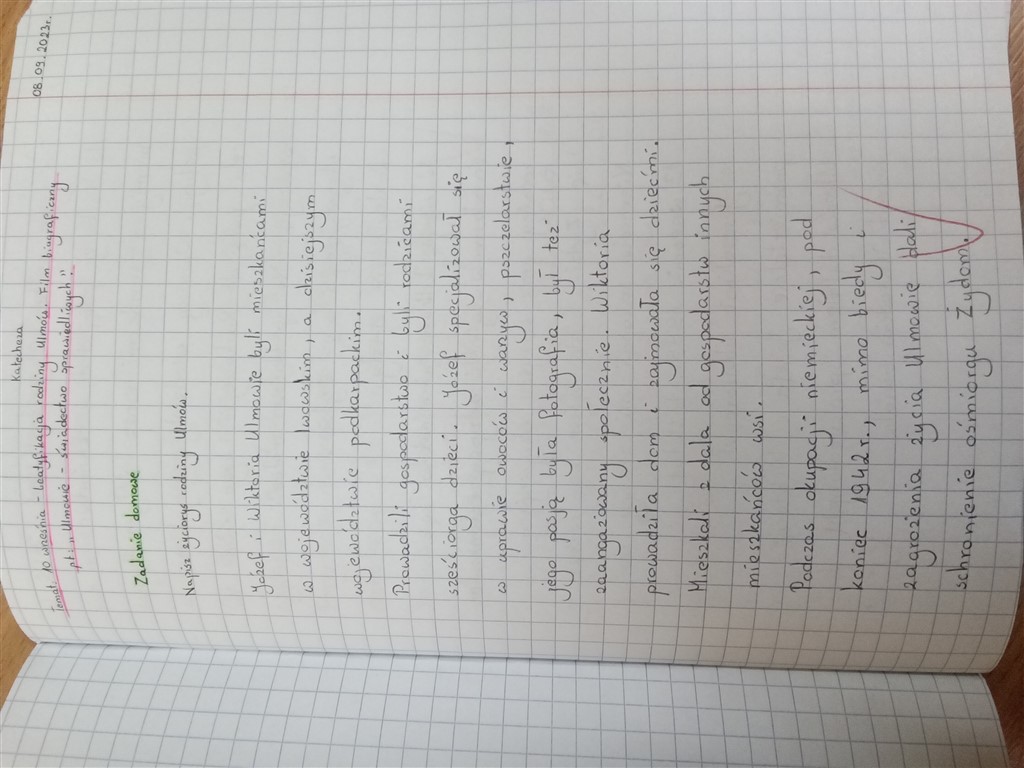 Katecheza
08.09.2023r.
Temat: 10 września - beatyfikacja rodziny Ulmów. Film biograficzny
pt. „Ulmowie - świadectwo sprawiedliwych".
Zadanie domowe
Napisz życiorys rodziny Ulmów.
Józef i Wiktoria Ulmowie byli mieszkańcami
w województwie lwowskim, a dzisiejszym
województwie podkarpackim.
Prowadzili gospodarstwo i byli rodzicami
sześciorga dzieci. Józef specjalizował się
w uprawie owoców i warzyw, pszczelarstwie,
jego pasją była fotografia, był też
zaangażowany społecznie. Wiktoria
prowadziła dom i zajmowała się dziećmi.
Mieszkali z dala od gospodarstw innych
mieszkańców wsi.
Podczas okupacji niemieckiej, pod
koniec 1942r., mimo biedy i
zagrożenia życia Ulmowie dali
schronienie ośmiorgu Żydom.